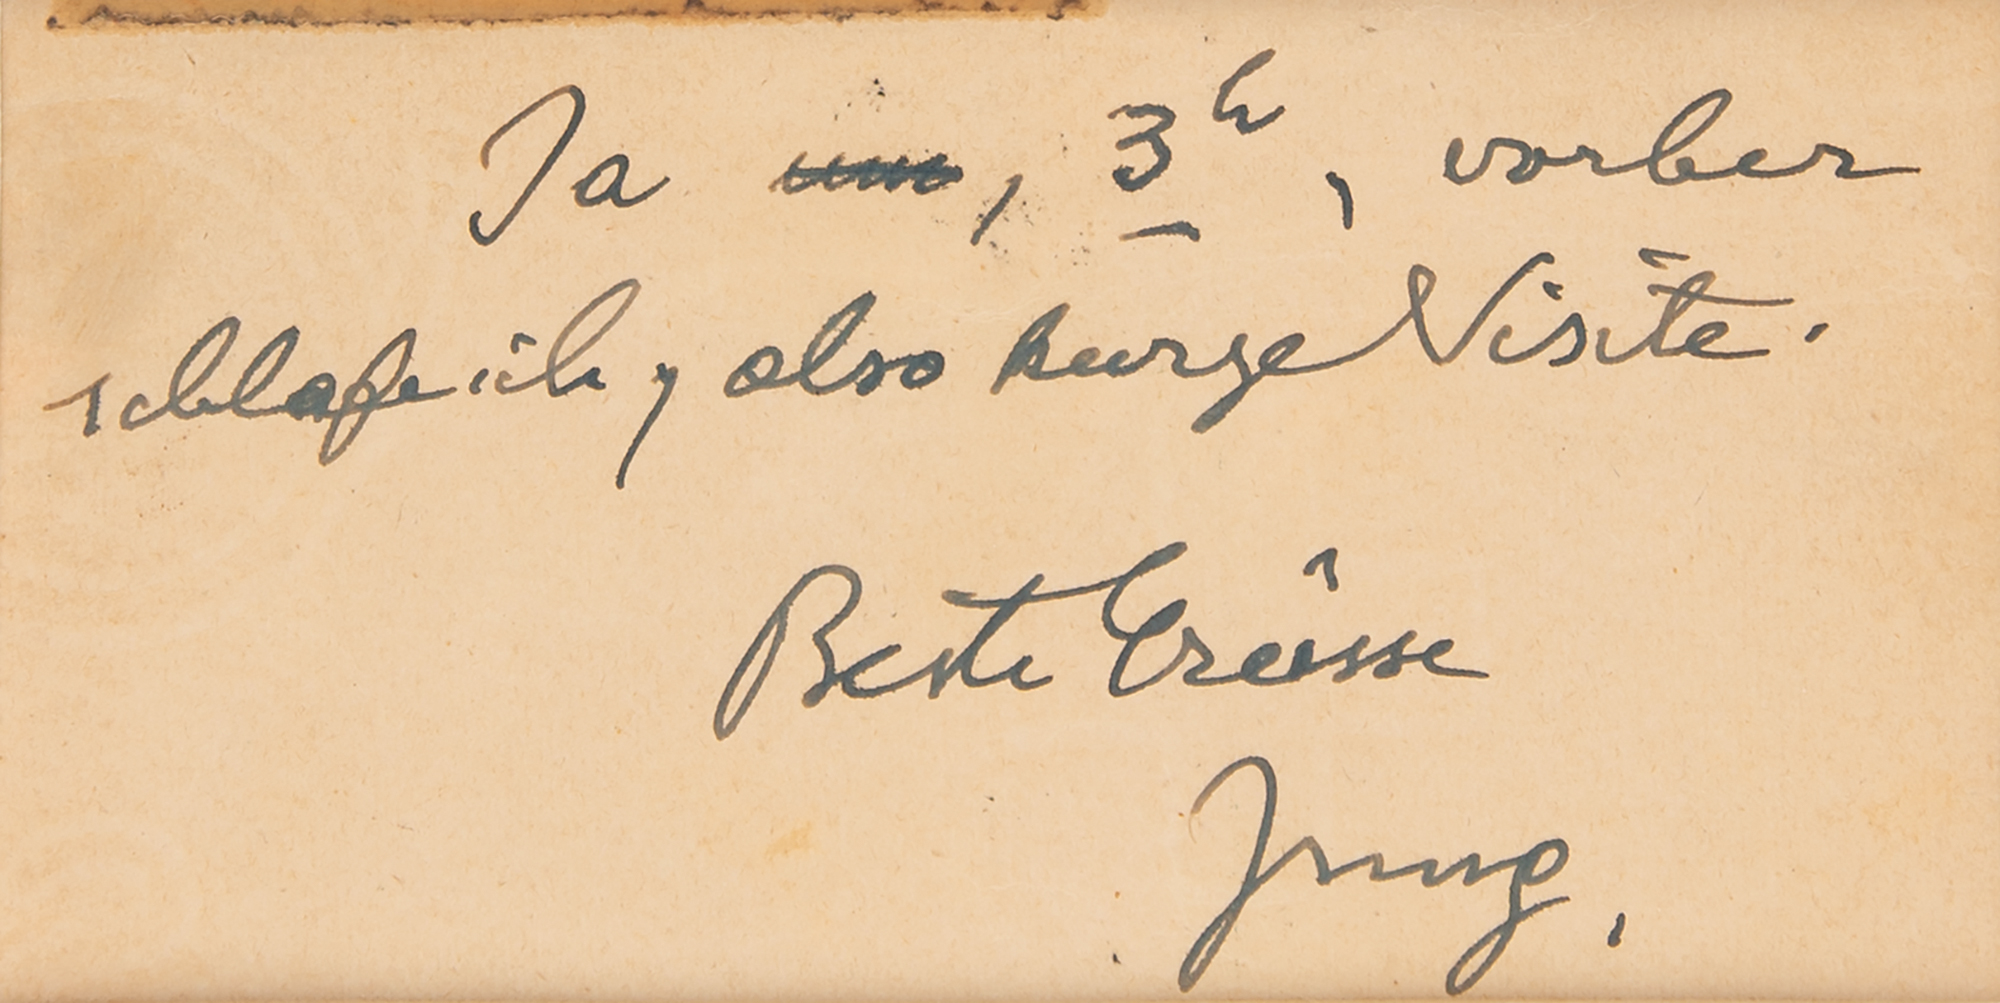 Ja, 3h, vorher
schlafe ich, also kurze Visite.
Beste Grüsse
Jung.